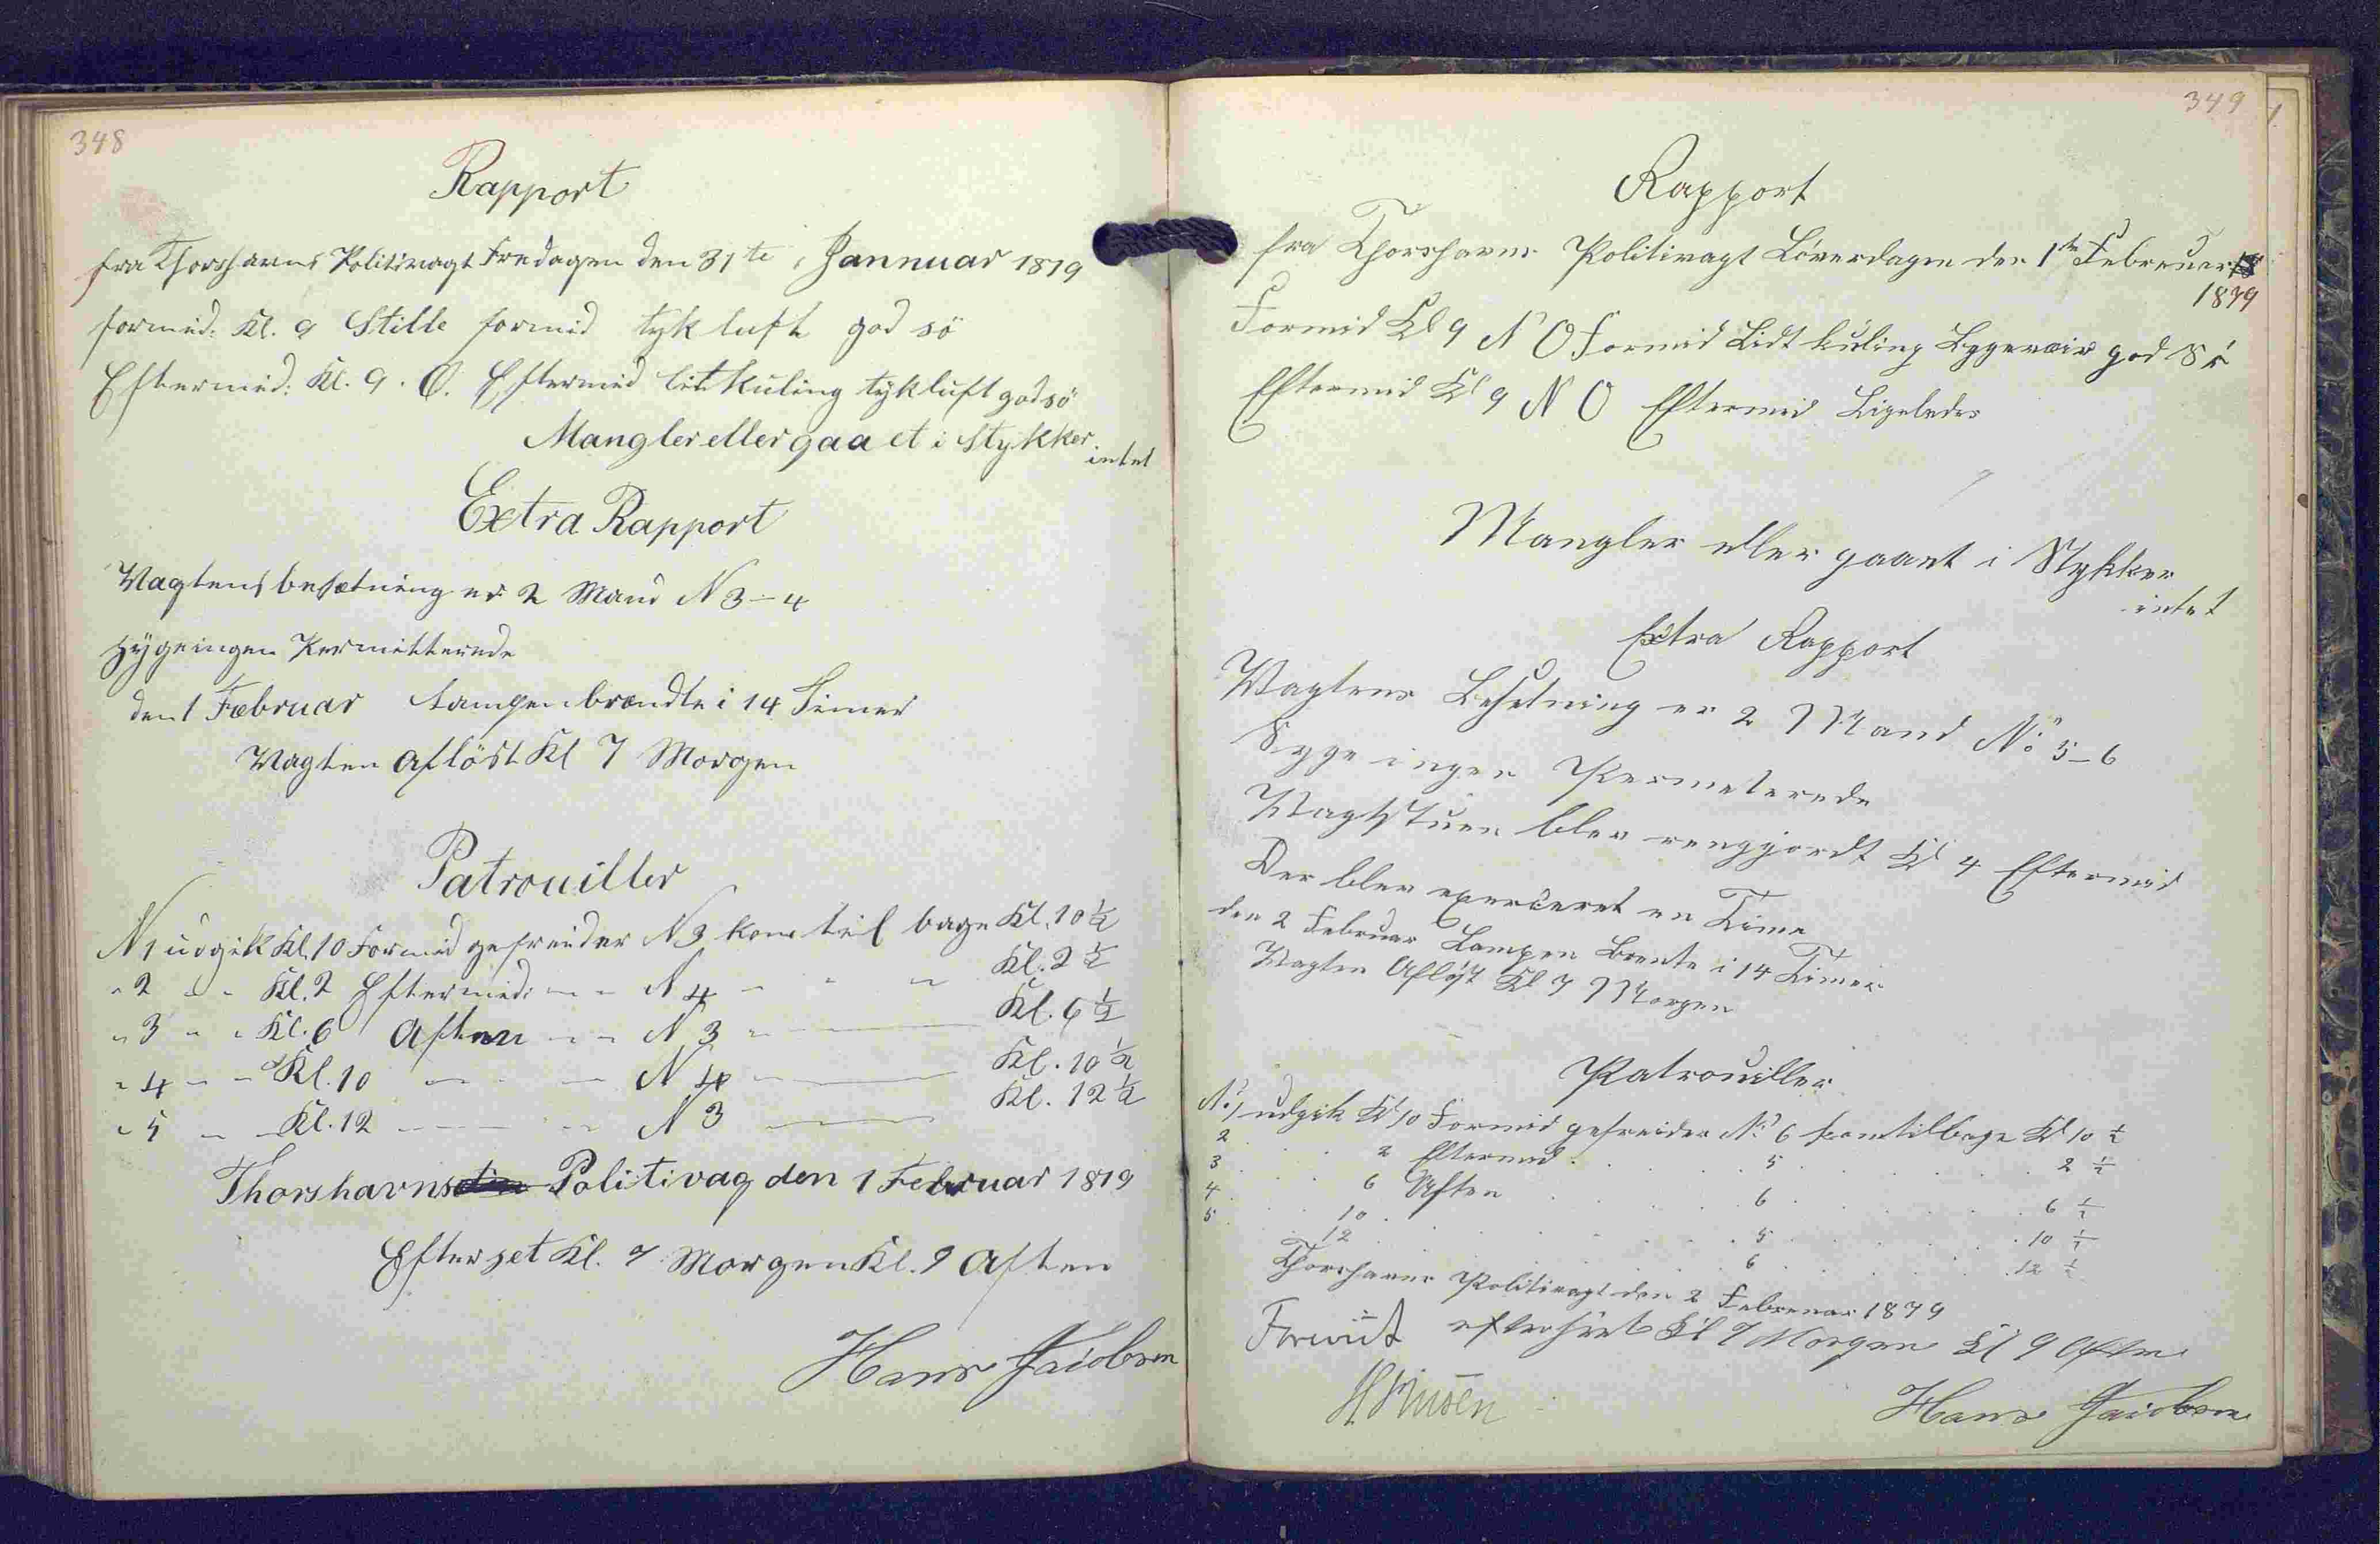 348
Rapport
fra Thorshavns Politivagt Fredagen den 31te Jannuar 1879
formid: Kl. 9 Stille formid tyk luft god sö
Eftermid: Kl. 9. O. Eftermid litkuling tykluft god sö
Mangler eller gaaet i Stykker
intet
Extra Rapport
Vagtens besætning er 2 Mand N 3-4
Sygeingen Permitterede
den 1 Februar Lampen brændte i 14 Timer
Vagten Aflöst Kl 7 Morgen
Patrouiller
N 1 udgik Kl. 10 Formid gefreider N 3 kom tilbage Kl. 10 ½
" 2 " " Kl. 2 Eftermid: " " N 4 " " " Kl. 2 ½
" 3 " " Kl. 6 Aften " " N 3 " Kl. 6 ½
" 4 " " Kl. 10 " " N 4 " Kl. 10 ½
" 5 " " Kl. 12 " " N 3 Kl. 12 ½
Thorshavns Politivag den 1 Februar 1879
Efterset Kl. 7 Morgen Kl. 9 Aften
Hans Jacobsen
349
Rapport
fra Thorshavns Politivagt Löverdagen den 1te Februar
1879
Formid Kl 9 N O Formid Lidt kuling Bygeveir god Sö
Eftermid Kl 9 N O Eftermid Ligeledes
Mangler eller gaaet i Stykker
intet
Extra Rapport
Vagtens Besetning er 2 Mand No 5-6
Syge ingen Permeterede
Vagtstuen blev rengjordt Kl 4 Eftermid
Der blev exerceret en Time
den 2 Februar Lampen Brente i 14 Timer
Vagten Afløst Kl 7 Morgen
Patrouiller
No 1 udgik Kl 10 Formid gefreider No 6 kom tilbage Kl 10 ½
2 . . . 2 Eftermid . . 5 . . . 2 ½
3 . . . 6 Aften . . 6 . . . 6 ½
4 . . . 10 . . . 5 . . . 10 ½
5 . . . 12 . . . 6 . . . 12 ½
Thorshavns Politivagt den 2 Februar 1879
efterseet Kl 7 Morgen Kl 9 Aften
Hans Jacobsen